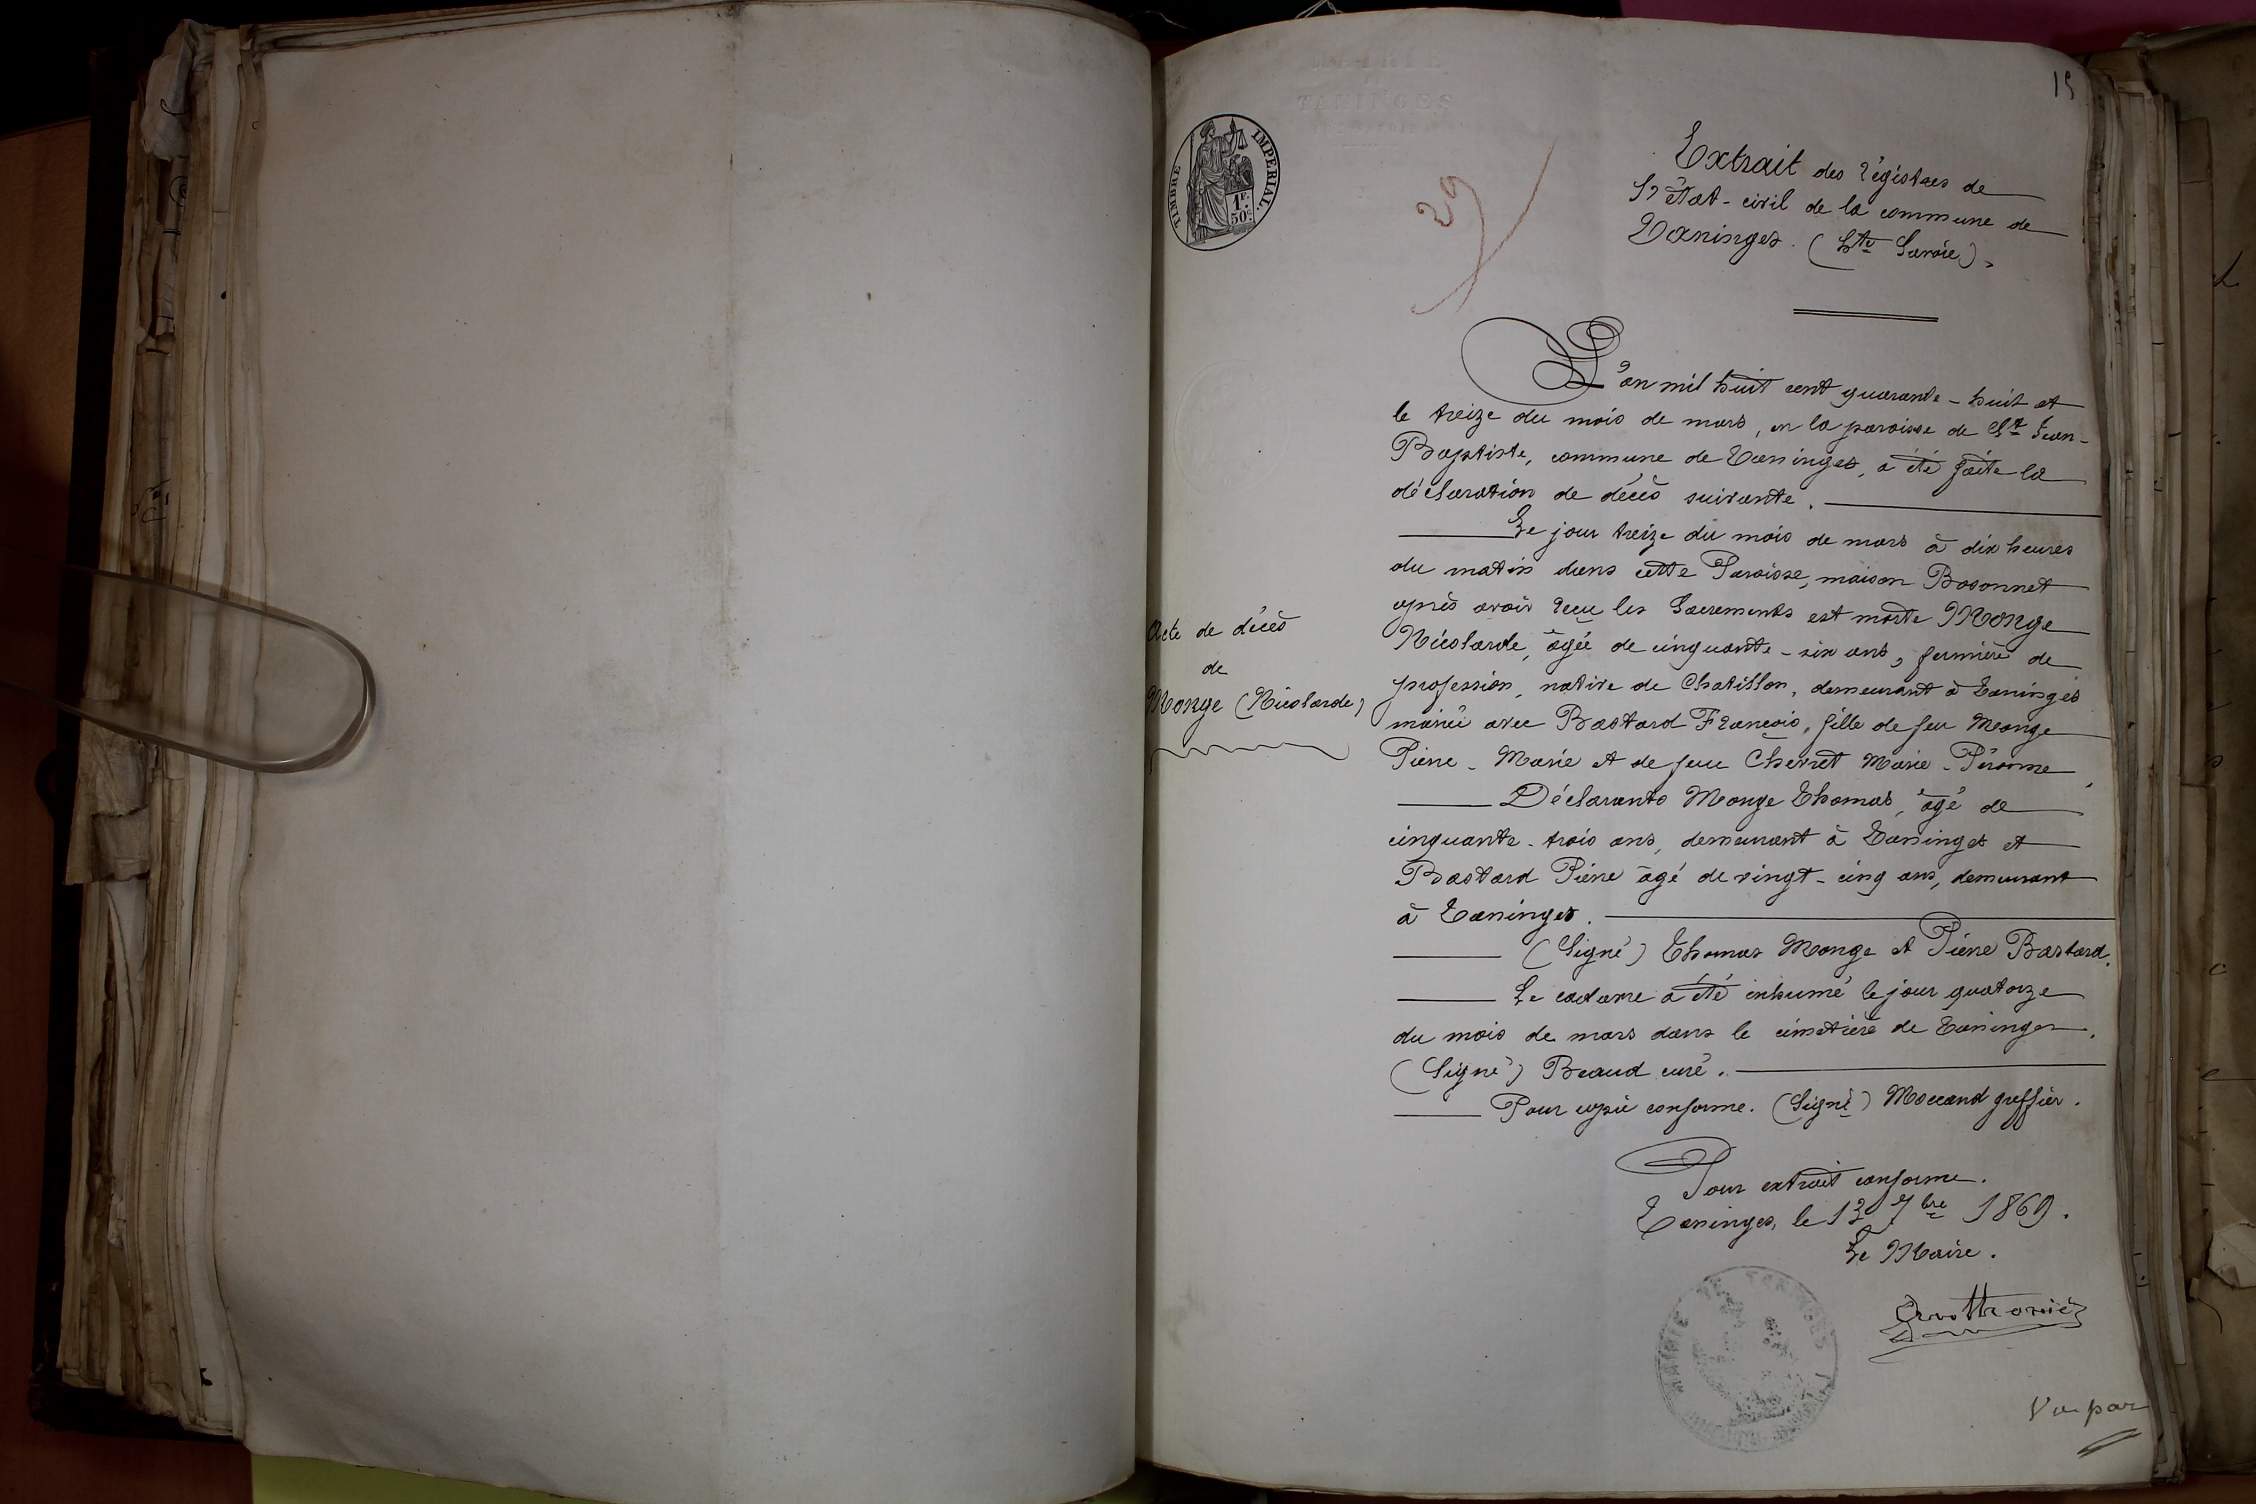 15
TIMBRE IMPERIAL.
1F.
50c.
29
Extrait des régistres de
l'état-civil de la commune de
Taninges. (Hte Savoie).
L'an mil huit cent quarante-huit et
le treize du mois de mars, en la paroisse de St Jean-
Baptiste, commune de Taninges, a été faite la
déclaration de décès suivante.
Le jour treize du mois de mars à dix heures
du matin dans cette Paroisse, maison Bosonnet
après avoir reçu les Sacrements est morte Monge
Nicolarde, âgée de cinquante-six ans, fermière de
profession, native de Chatillon, demeurant à Taninges
mariée avec Bastard François, fille de feu Monge
Pierre-Marie et de feue Cherret Marie-Péronne.
Déclarants Monge Thomas, âgé de
cinquante-trois ans, demeurant à Taninges et
Bastard Pierre âgé de vingt-cinq ans, demeurant
à Taninges.
(Signé) Thomas Monge et Pierre Bastard.
Le cadavre a été inhumé le jour quatorze
du mois de mars dans le cimetière de Taninges.
(Signé) Beaud curé.
Pour copie conforme. (Signé) Moccand greffier.
Acte de décès
de
Monge (Nicolarde)
Pour extrait conforme.
Taninges, le 13 7bre 1869.
Le Maire.
MAIRIE DE TANINGES
Vu par